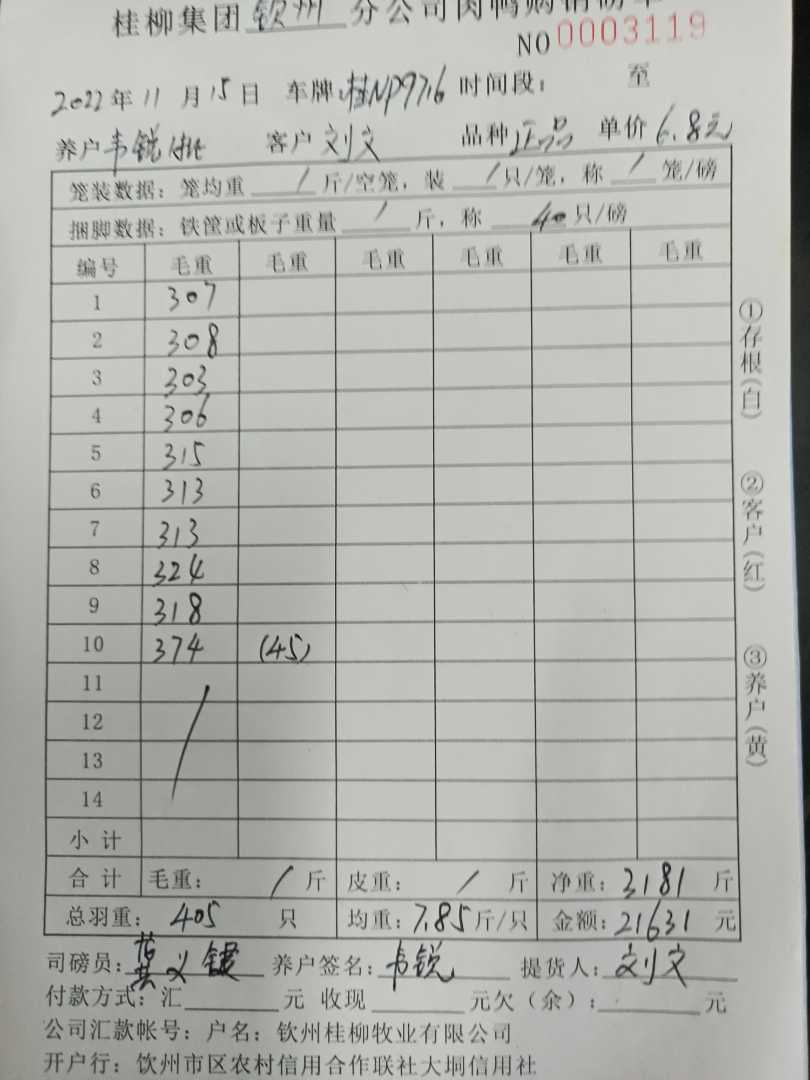 桂柳集团 钦州 分公司肉鸭购销磅单
NO 0003119
2022年 11 月 15 日 车牌:桂NP9716 时间段: 至
养户 韦锐 客户 刘文 品种 正品 单价 6.8元
笼装数据: 笼均重 / 斤/空笼, 装 / 只/笼, 称 / 笼/磅
捆脚数据: 铁筐或板子重量 / 斤, 称 40 只/磅
编号 毛重 毛重 毛重 毛重 毛重 毛重
1 307
2 308
3 303
4 306
5 315
6 313
7 313
8 324
9 318
10 374 (45)
11
12
13
14
小 计
合 计 毛重: / 斤 皮重: / 斤 净重: 3181 斤
总羽重: 405 只 均重: 7.85 斤/只 金额: 21631 元
司磅员: 黄义键 养户签名: 韦锐 提货人: 刘文
付款方式: 汇 元 收现 元欠(余): 元
公司汇款帐号: 户名: 钦州桂柳牧业有限公司
开户行: 饮州市区农村信用合作联社大垌信用社
①存根(白)
②客户(红)
③养户(黄)